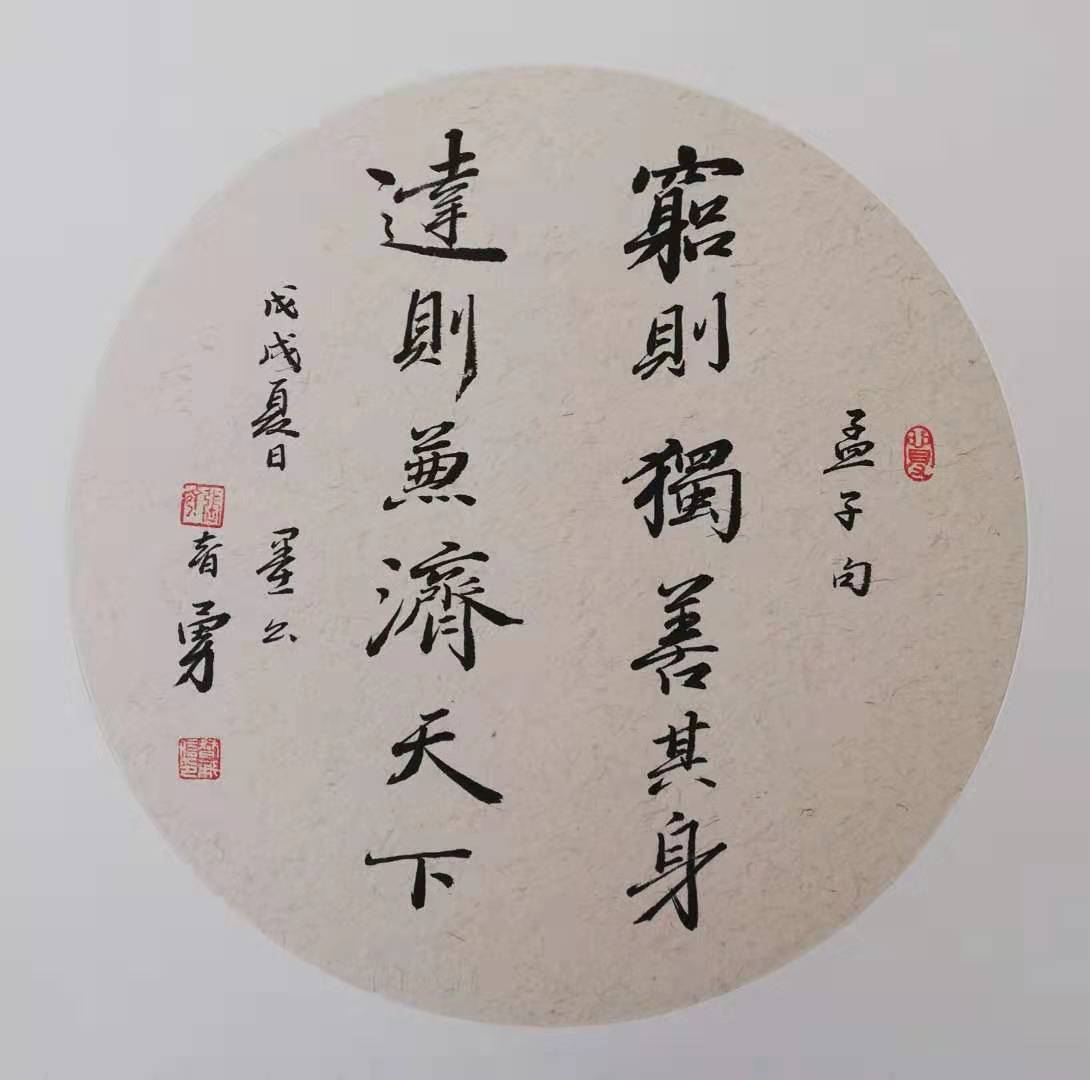 孟子句
窮則獨善其身
達則兼濟天下
戊戌夏日 墨公
春勇